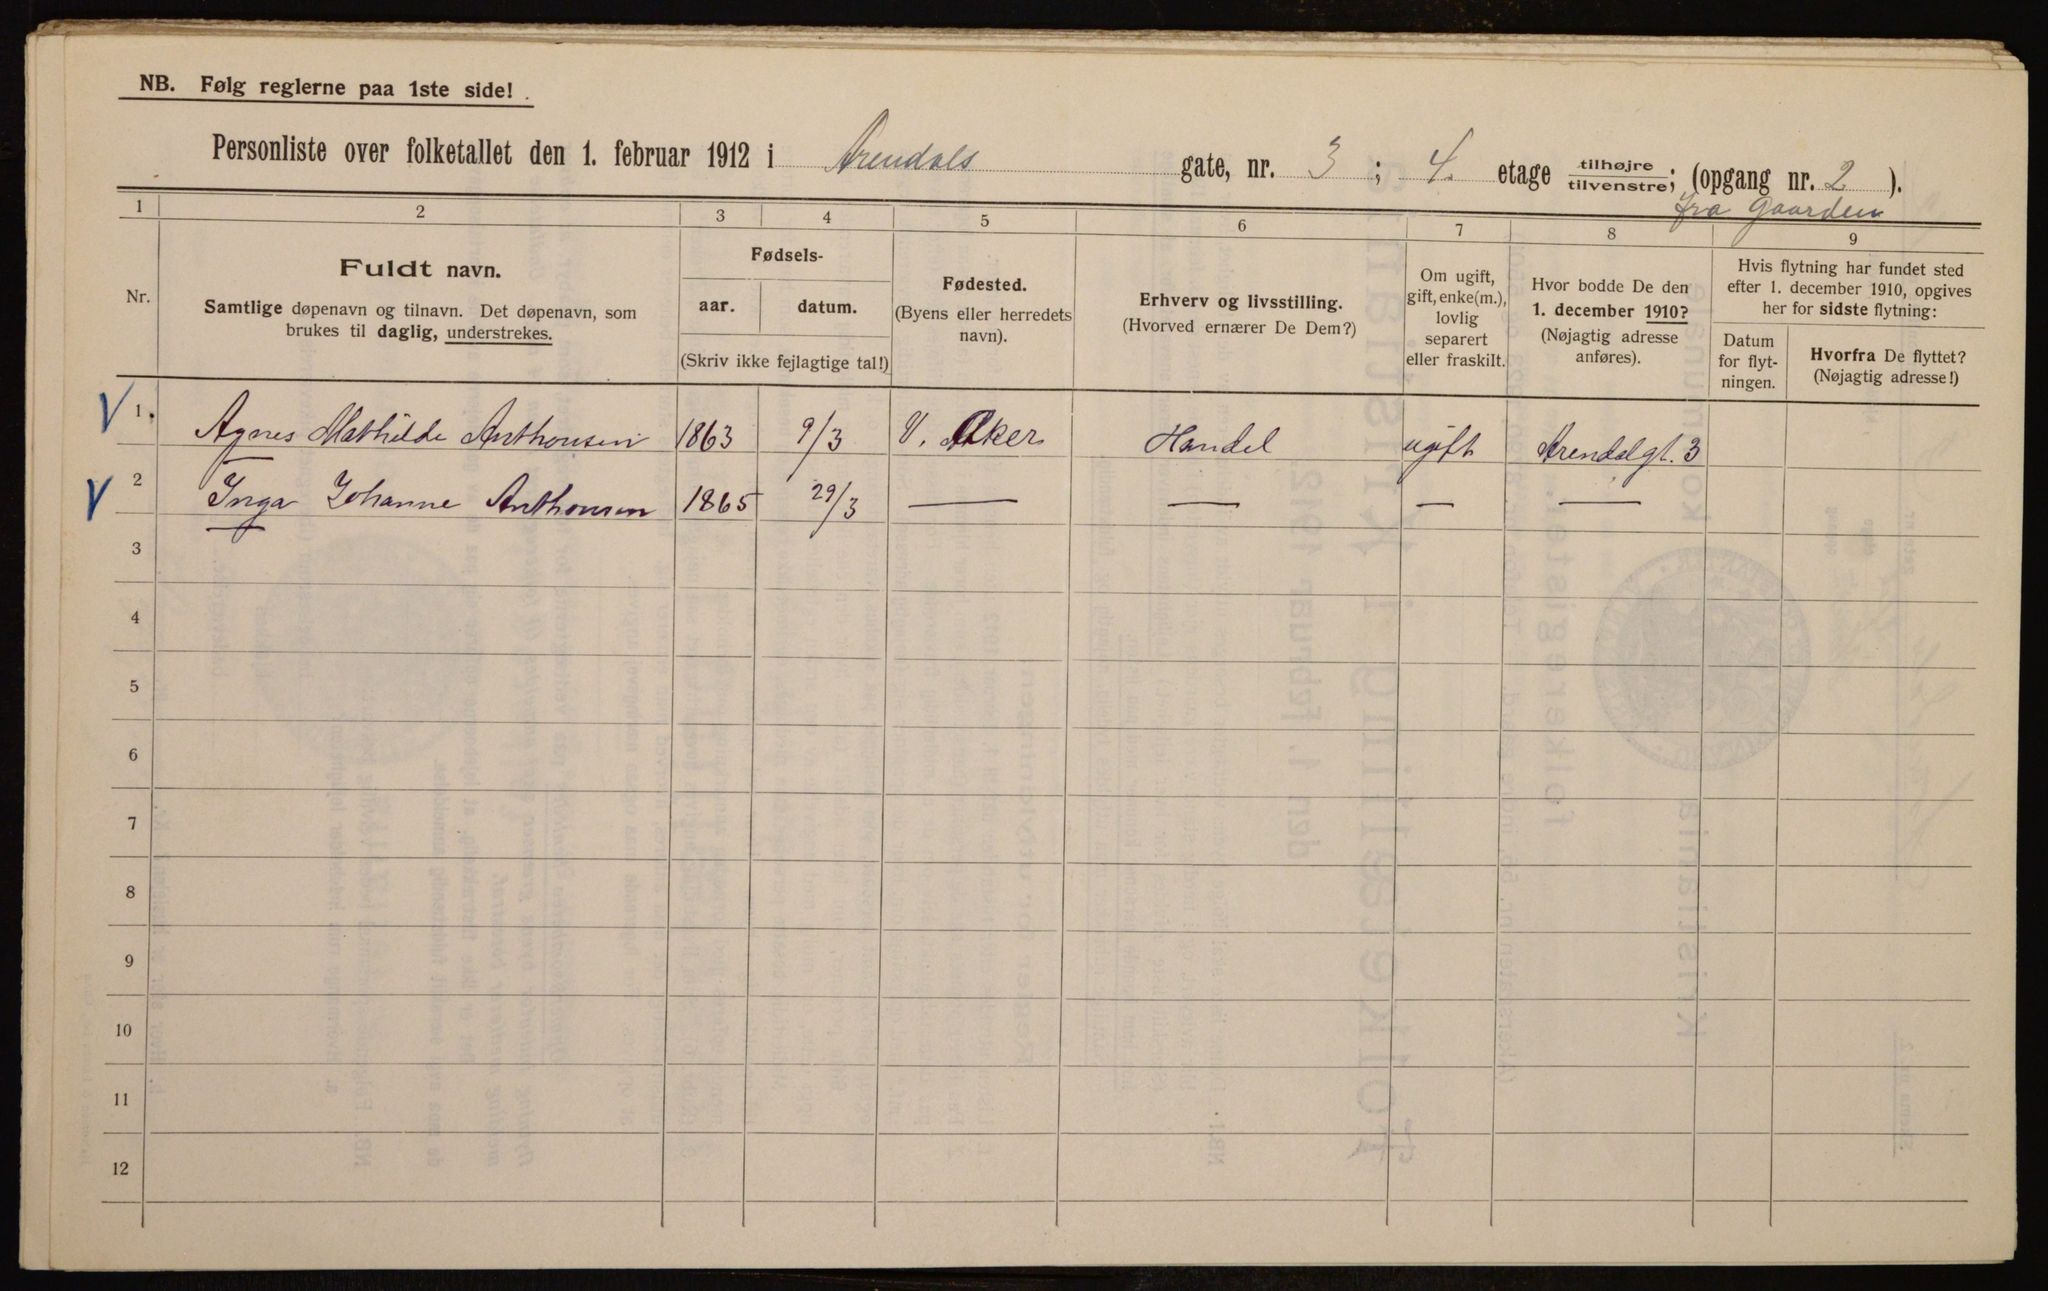 NB. Følg reglerne paa 1ste side!
Personliste over folketallet den 1. februar 1912 i Arendals gate, nr. 3 ; 4. etage tilhøjre/tilvenstre; (opgang nr. 2 ).
fra Gaarden
1 2 3 4 5 6 7 8 9
Nr.
Fuldt navn.
Samtlige døpenavn og tilnavn. Det døpenavn, som
brukes til daglig, understrekes.
Fødsels-
aar. datum.
(Skriv ikke fejlagtige tal!)
Fødested.
(Byens eller herredets
navn).
Erhverv og livsstilling.
(Hvorved ernærer De Dem?)
Om ugift,
gift, enke(m.),
lovlig
separert
eller fraskilt.
Hvor bodde De den
1. december 1910?
(Nøjagtig adresse
anføres).
Hvis flytning har fundet sted
efter 1. december 1910, opgives
her for sidste flytning:
Datum
for flyt-
ningen.
Hvorfra De flyttet?
(Nøjagtig adresse!)
V 1. Agnes Mathilde Anthonsen 1863 9/3 V. Aker Handel ugift Arendalgt. 3
V 2 Inga Johanne Anthonsen 1865 29/3 — — — —
3
4
5
6
7
8
9
10
11
12